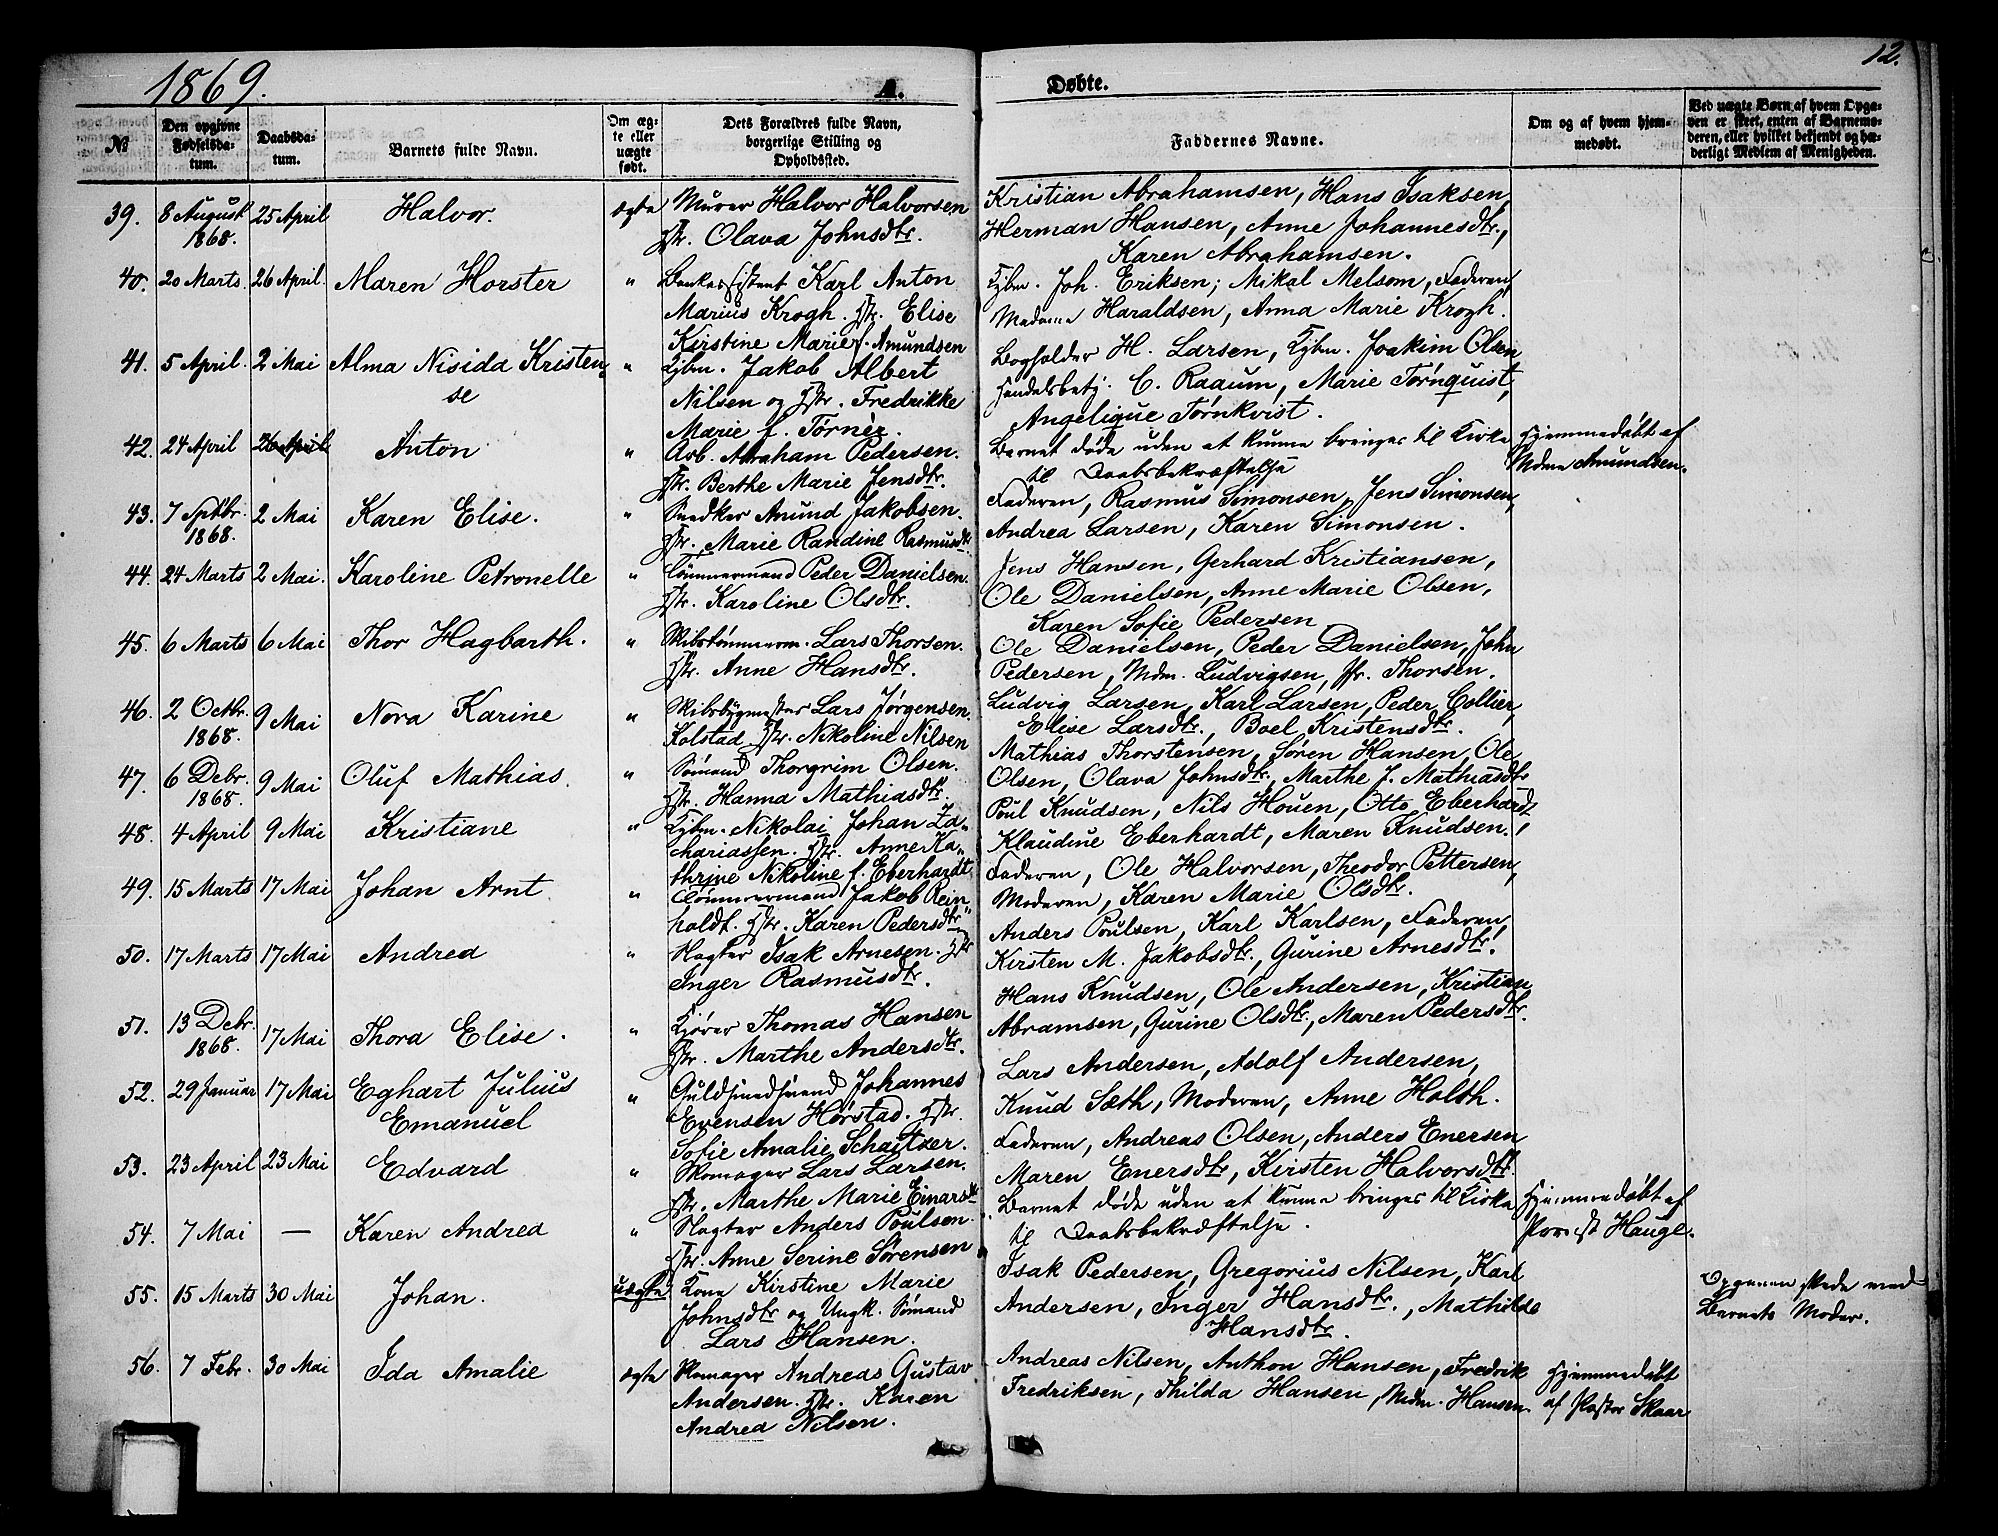 1869.
A.
Døbte.
12.
№
Den opgivne Fødselsdatum.
Daabsdatum.
Barnets fulde Navn.
Om ægte eller uægte født.
Dets Forældres fulde Navn, borgerlige Stilling og Opholdssted.
Faddernes Navne.
Om og af hvem hjemmedøbt.
Ved uægte Børn af hvem Opgaven er skeet, enten af Barnemoderen, eller hvilket bekjendt og hæderligt Medlem af Menigheden.
39. 8 August 1868. 25 April Halvor. ægte Murer Halvor Halvorsen
Hstr. Olava Johnsdtr.
Kristian Abrahamsen, Hans Isaksen,
Herman Hansen, Anne Johannesdtr.,
Karen Abrahamsen.
40. 20 Marts 26 April. Maren Horster " Bankassistent Karl Anton
Marius Krogh. Hstr. Elise
Kirstine Marie f. Amundsen
Kjbm. Joh. Eriksen; Mikal Melsom, Faderen,
Madame Haraldsen, Anna Marie Krogh.
41. 5 April. 2 Mai Alma Nisida Kristen-
se
" Kjbm. Jakob Albert
Nilsen og Hstr. Fredrikke
Marie f. Törnér.
Bogholder H. Larsen, Kjbm. Joakim Olsen
Handelsbetj. C. Raaum, Marie Törnquist,
Angelique Törnkvist.
42. 24 April 26 April Anton " Arb. Abraham Pedersen.
Hstr. Berthe Marie Jensdtr.
Barnet døde uden at kunne bringes til Kirke
til Daabsbekræftelse
Hjemmedøbt af
Mdme Amundsen.
43. 7 Sptbr. 1868. 2 Mai Karen Elise. " Snedker Anund Jakobsen.
Hstr. Marie Randine Rasmusdtr
Faderen, Rasmus Simonsen, Jens Simonsen,
Andrea Larsen, Karen Simonsen.
44. 24 Marts 2 Mai. Karoline Petronelle " Tømmermand Peder Danielsen.
Hstr. Karoline Olsdtr.
Jens Hansen, Gerhard Kristiansen,
Ole Danielsen, Anne Marie Olsen,
Karen Sofie Pedersen
45. 6 Marts 6 Mai Thor Hagbarth. " Skibstømmerm. Lars Thorsen.
Hstr. Anne Hansdtr.
Ole Danielsen, Peder Danielsen, John
Pedersen, Mdm. Ludvigsen, Jfr. Thorsen.
46. 2 Octbr. 1868. 9 Mai Nora Karine " Skibsbygmester Lars Jørgensen.
Kolstad Hstr. Nikoline Nilsen
Ludvig Larsen, Karl Larsen, Peder Collier,
Elise Larsdtr., Boel Kristensdtr.
47. 6 Debr. 1868. 9 Mai Oluf Mathias. " Sømand Thorgrim Olsen.
Hstr. Hanna Mathiasdtr.
Mathias Thorstensen, Søren Hansen, Ole
Olsen, Olava Johnsdtr., Marthe J. Mathiasdtr
48. 4 April 9 Mai Kristiane " Kjbm. Nikolai Johan Za-
chariassen. Hstr. Anne Ka-
thrine Nikoline f. Eberhardt
Poul Knudsen, Nils Houen, Otto Eberhardt
Klaudine Eberhardt, Maren Knudsen.
49. 15 Marts 17 Mai Johan Arnt " Tømmermand Jakob Rein-
holdt. Hstr. Karen Pedersdtr.
Faderen, Ole Halvorsen, Theodor Pettersen,
Moderen, Karen Marie Olsdtr.
50. 17 Marts 17 Mai Andrea " Slagter Isak Arnesen. Hstr
Inger Rasmusdtr.
Anders Poulsen, Karl Karlsen, Faderen,
Kirsten M. Jakobsdtr., Gurine Arnesdtr.
51. 13 Debr. 1868. 17 Mai Thora Elise. " Kjører Thomas Hansen
Hstr. Marthe Andersdtr.
Hans Knudsen, Ole Andersen, Kristian
Abramsen, Gurine Olsdtr., Maren Pedersdtr.
52. 29 Januar 17 Mai Eghart Julius
Emanuel
" Guldsmedsvend Johannes
Evensen Hørstad. Hstr.
Sofie Amalie Schaitzer.
Lars Andersen, Adolf Andersen,
Knud Sæth, Moderen, Anne Holth.
53. 23 April 23 Mai Edvard " Skomager Lars Larsen.
Hstr. Marthe Marie Einarsdtr
Faderen, Andreas Olsen, Anders Enersen
Maren Enersdtr., Kirsten Halvorsdtr.
54. 7 Mai — Karen Andrea " Slagter Anders Poulsen.
Hstr. Anne Serine Sørensen
Barnet døde uden at kunne bringes til Kirke
til Daabsbekræftelse.
Hjemmedøbt af
Provst Haugl.
55. 15 Marts 30 Mai Johan. uægte Kone Kirstine Marie
Johnsdtr og Ungk. Sømand
Lars Hansen.
Isak Pedersen, Gregorius Nilsen, Karl
Andersen, Inger Hansdtr., Mathilde
Hansdtr.
Opgaven skede ved
Barnets Moder.
56. 7 Febr. 30 Mai Ida Amalie ægte Skomager Andreas Gustav
Andersen. Hstr. Karen
Andrea Nilsen.
Andreas Nilsen, Anthon Hansen, Fredrik
Fredriksen, Thilda Hansen, Mdm. Hansen
Hjemmedøbt
af Pastor Skaar